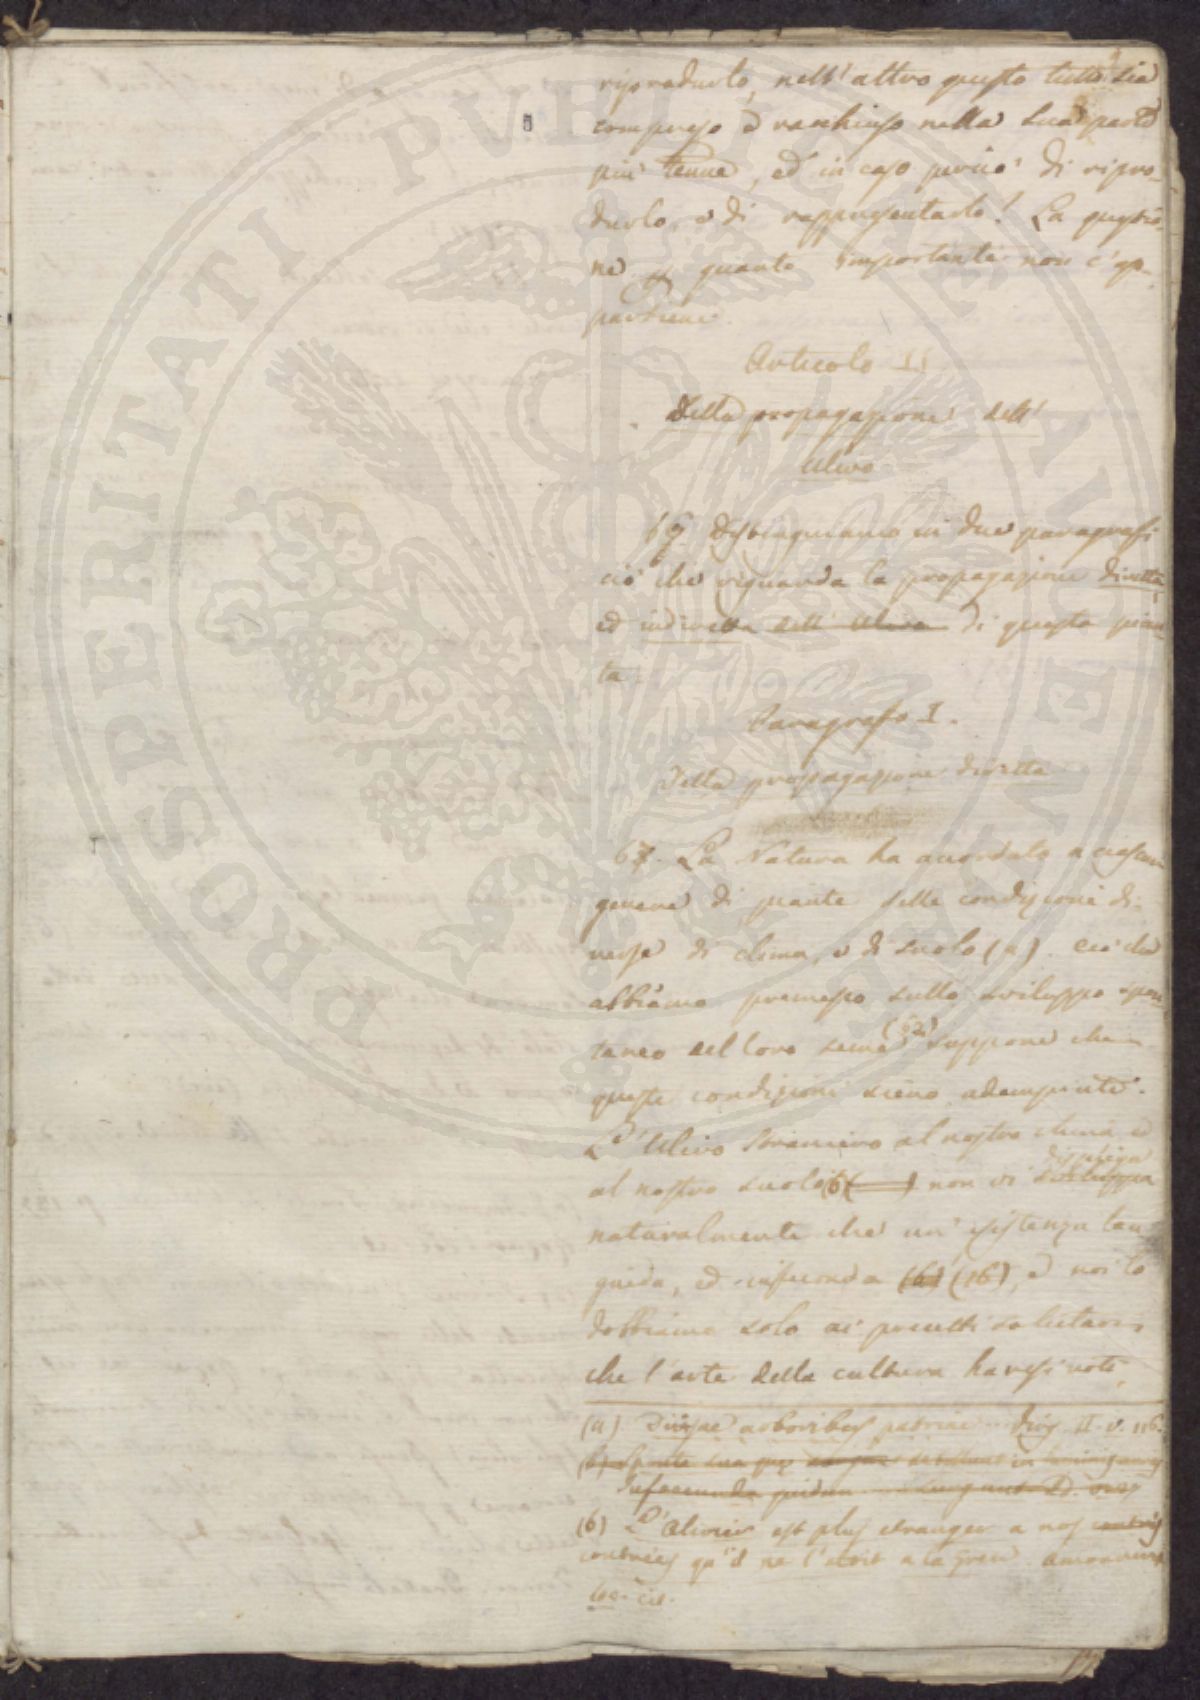 riprodurlo, nell'altro questo tutto sia
compreso e racchiuso nella sua parte
più tenue, ed in caso perciò di ripro-
durlo, e di rappresentarlo! La questio-
ne quanto importante non ci ap-
partiene.
Articolo II
Della propagazione dell'
Ulivo
69. Distinguiamo in due paragrafi
ciò che riguarda la propagazione diretta,
ed indiretta dell' Ulivo di questa pian-
ta.
Paragrafo I.
Della propagazione diretta
67. La Natura ha accordato a ciascun
genere di piante delle condizioni di-
verse di clima, e di suolo (a). Ciò che
abbiamo premesso sullo sviluppo spon-
taneo del loro seme (52) suppone che
queste condizioni sieno adempiute.
L'Ulivo straniero al nostro clima e
al nostro suolo (b) non vi sviluppa dispiega
naturalmente che un'esistenza lan-
guida, ed infeconda (b) (16), e noi lo
dobbiamo solo ai precetti salutari
che l'arte della cultura ha resi noti.
(a) Divisae arboribus patriae Virg. II. v. 116.
(b) Sponte sua quae se tollunt in luminis auras
Infaecunda quidem
(b) L'Olivier est plus etranger a nos
contrées qu'il ne l'etoit a la Grece. Amoureux
loc. cit.
PROSPERITATI PUBLICAE AUGENDAE